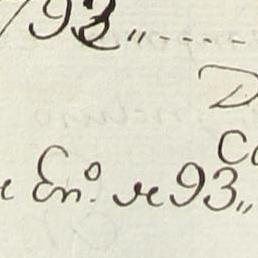 792,,....
D
Co
e En.º de 93,,